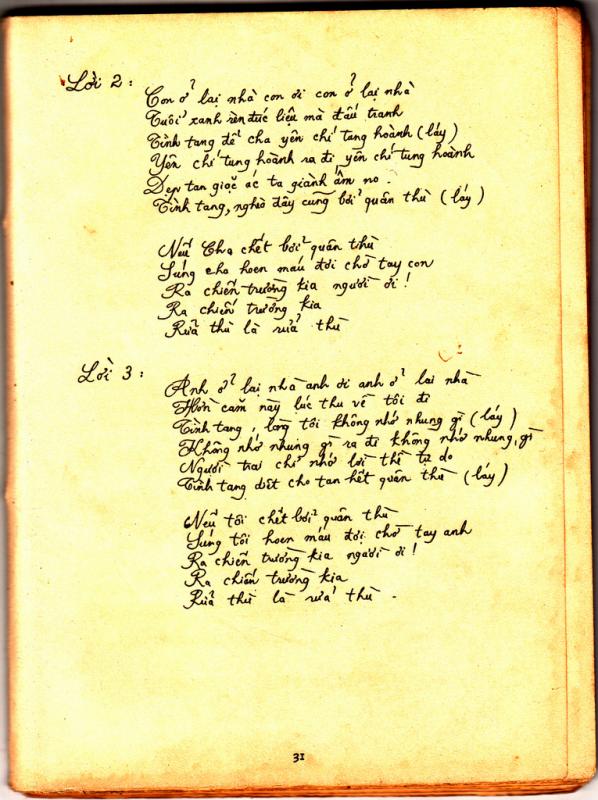 Lời 2 :
Con ở lại nhà con ơi con ở lại nhà
Tuổi xanh rèn đúc liệu mà đấu tranh
Tình tang để cha yên chí tang hoành (láy)
Yên chí tung hoành ra đi yên chí tung hoành
Dẹp tan giặc ác ta giành ấm no .
Tình tang, nghèo đây cũng bởi quân thù (láy)
Nếu Cha chết bởi quân thù
Súng cha hoen máu đợi chờ tay con
Ra chiến trường kia người ơi !
Ra chiến trường kia
Rửa thù là rửa thù
Lời 3 :
Anh ở lại nhà anh ơi anh ở lại nhà
Hờn căm này lúc thu về tôi đi
Tình tang, lòng tôi không nhớ nhung gì (láy)
Không nhớ nhung gì ra đi không nhớ nhung gì
Người trai chỉ nhớ lời thề tự do
Tình tang diệt cho tan hết quân thù (láy)
Nếu tôi chết bởi quân thù
Súng tôi hoen máu đợi chờ tay anh
Ra chiến trường kia người ơi !
Ra chiến trường kia
Rửa thù là rửa thù .
31